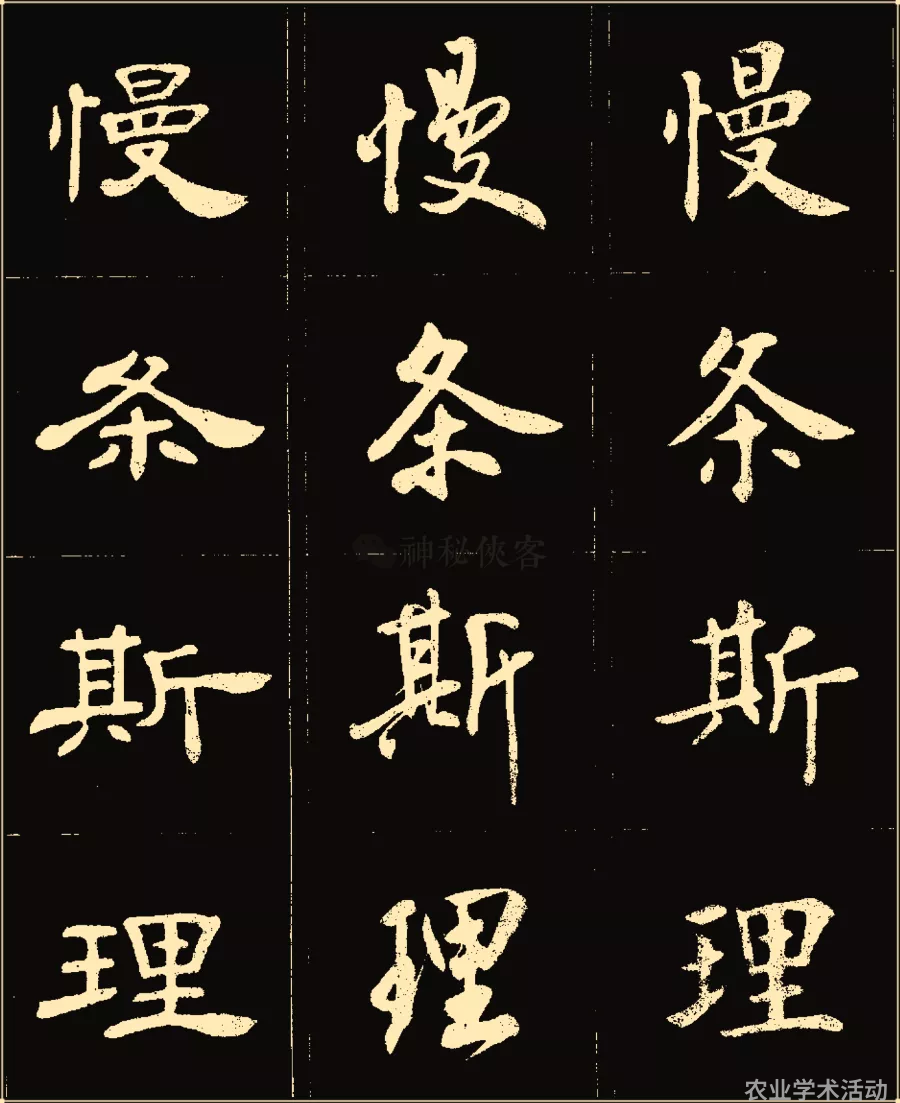 慢 慢 慢
条 条 条
神秘侠客
斯 斯 斯
理 理 理
农业学术活动